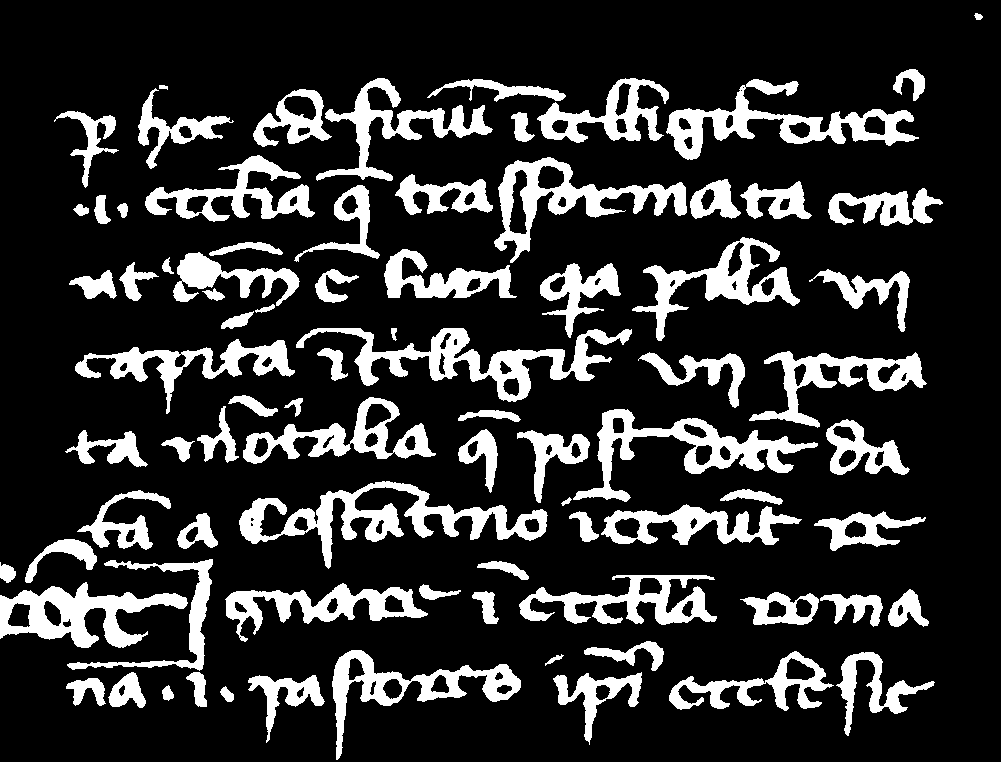 ꝑ hoc edificiũ ĩtelligit᷑ curr⁹
.i. eccłia q̃ trasformata erat
ut ẽ qa ꝑ illa vij
capita ĩtelligit᷑ vij pecca
ta mõtalia q̃ post dotẽ da
tã a Costãtino ĩceperũt re
gnare ĩ eccłia roma
na .i. pastores ip̃i⁹ eccłesie